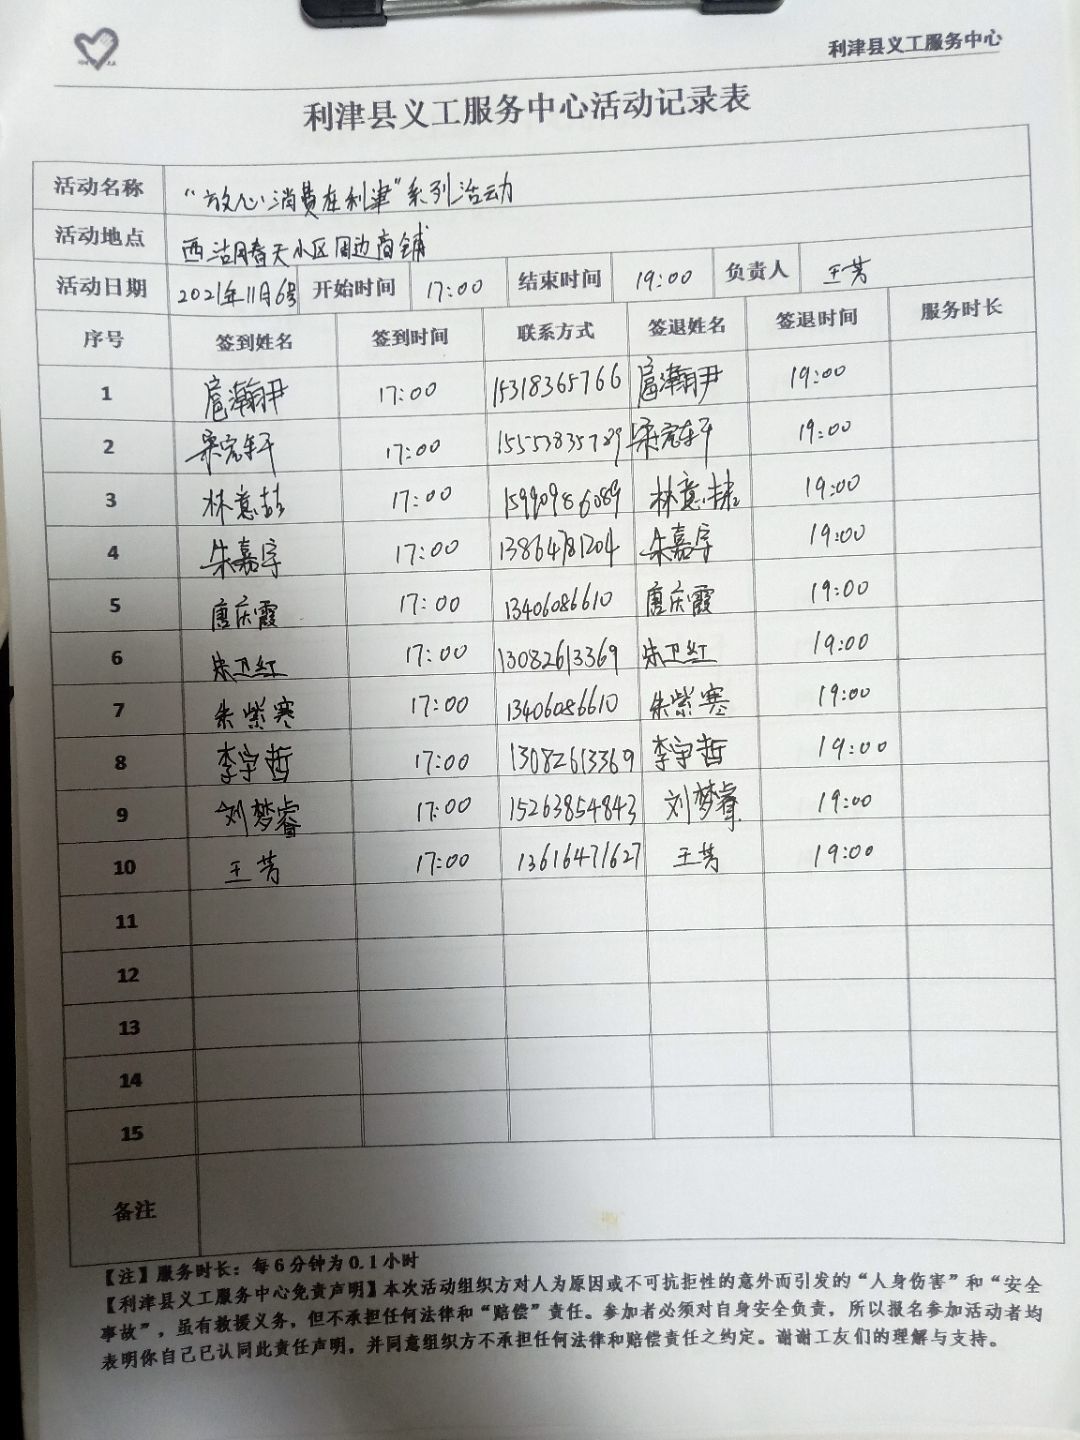 利津县义工服务中心
利津县义工服务中心活动记录表
活动名称 “放心消费在利津”系列活动
活动地点 西湖春天小区周边商铺
活动日期 2021年11月6号 开始时间 17:00 结束时间 19:00 负责人 王芳
序号 签到姓名 签到时间 联系方式 签退姓名 签退时间 服务时长
1 扈瀚尹 17:00 15318365766 扈瀚尹 19:00
2 宋宪轩 17:00 19:00
3 林意喆 17:00 15990986089 19:00
4 朱嘉宇 17:00 13864781204 朱嘉宇 19:00
5 唐庆霞 17:00 13406086610 唐庆霞 19:00
6 朱卫红 17:00 13082613369 朱卫红 19:00
7 朱紫寒 17:00 13406086610 朱紫寒 19:00
8 李宇哲 17:00 13082613369 李宇哲 19:00
9 刘梦睿 17:00 15263854843 刘梦睿 19:00
10 王芳 17:00 13616471627 王芳 19:00
11
12
13
14
15
备注
【注】服务时长：每6分钟为0.1小时
【利津县义工服务中心免责声明】本次活动组织方对人为原因或不可抗拒性的意外而引发的“人身伤害”和“安全
事故”，虽有救援义务，但不承担任何法律和“赔偿”责任。参加者必须对自身安全负责，所以报名参加活动者均
表明你自己已认同此责任声明，并同意组织方不承担任何法律和赔偿责任之约定。谢谢工友们的理解与支持。